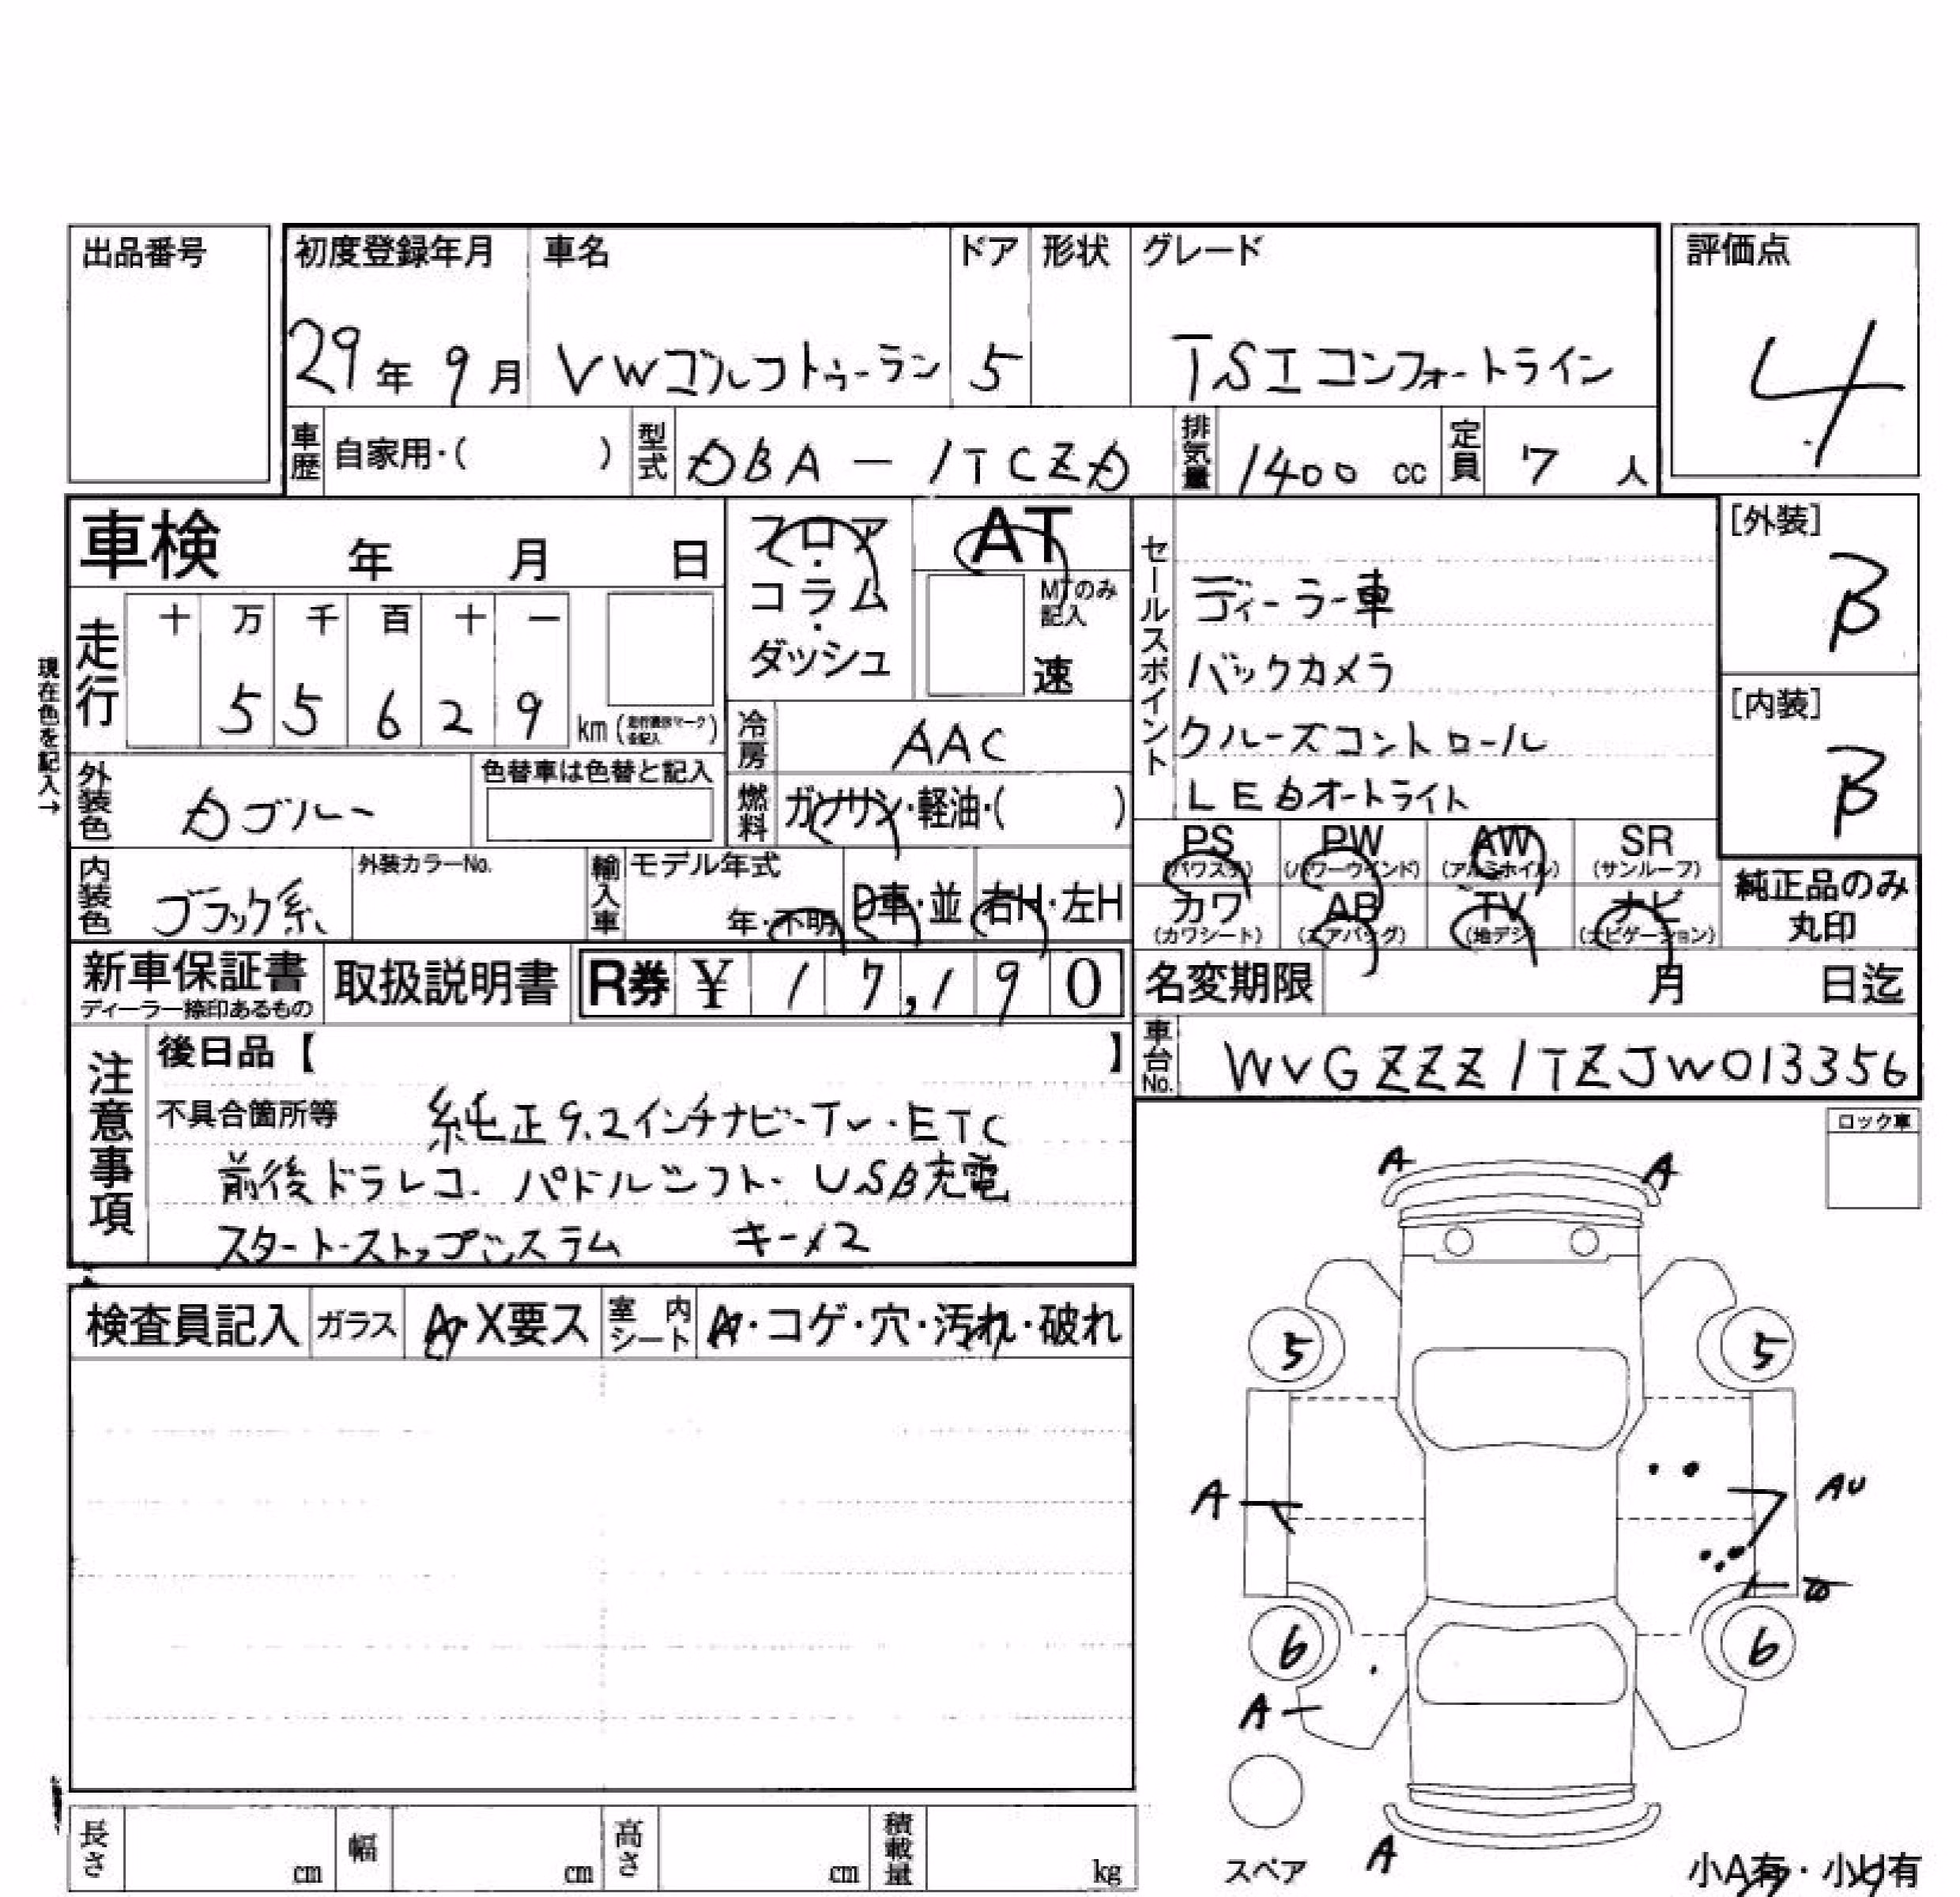 出品番号
初度登録年月 車名 ドア 形状 グレード 評価点
29年 9月 VWゴルフトゥーラン 5 TSIコンフォートライン 4
車歴 自家用・( ) 型式 DBA-1TCZD 排気量 1400 cc 定員 7 人
車検 年 月 日
フロア・コラム・ダッシュ
AT
MTのみ記入
速
セールスポイント
ディーラー車
バックカメラ
クルーズコントロール
LEDオートライト
[外装] B
[内装] B
現在色を記入→
走行 十 万 千 百 十 一
5 5 6 2 9 km
冷房 AAC
外装色 Dブルー 色替車は色替と記入
燃料 ガソリン・軽油・( )
内装色 ブラック系 外装カラーNo.
輸入車 モデル年式 年・不明 D車・並 右H・左H
PS (パワステ) PW (パワーウインド) AW (アルミホイル) SR (サンルーフ)
カワ (カワシート) AB (エアバッグ) TV (地デジ) ナビ (ナビゲーション)
純正品のみ
丸印
新車保証書 取扱説明書 R券 ¥ 17,190
ディーラー捺印あるもの
名変期限 月 日迄
車台No. WVGZZZ1TZJW013356
注意事項
後日品【 】
不具合箇所等 純正9.2インチナビ・TV・ETC
前後ドラレコ・パドルシフト・USB充電
スタート・ストップシステム キー×2
ロック車
検査員記入 ガラス A・X要ス 室内シート A・コゲ・穴・汚れ・破れ
A A
5 5
A AU
6 6
A
スペア A
小A有・小U有
長さ cm 幅 cm 高さ cm 積載量 kg